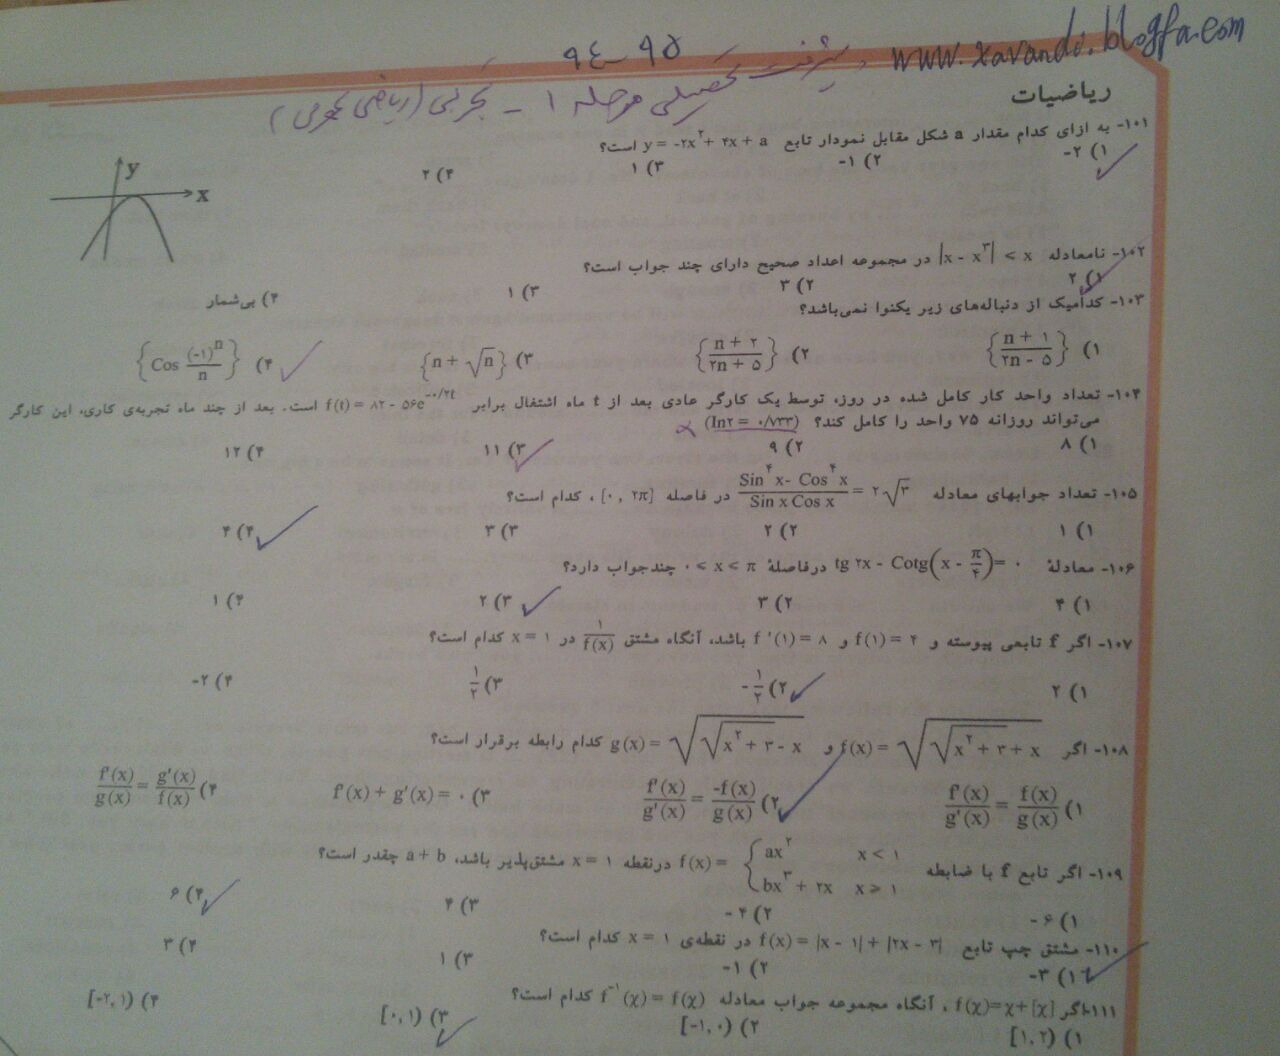 www.xavandi.blogfa.com
۹۴-۹۵
پیشرفت تحصیلی مرحله ۱ - تجربی (ریاضی عمومی)
ریاضیات
۱۰۱- به ازای کدام مقدار a شکل مقابل نمودار تابع y = -۲x^۲ + ۴x + a است؟
۱) -۲ ۲) -۱ ۳) ۱ ۴) ۲
y
x
۱۰۲- نامعادله |x - x^۳| < x در مجموعه اعداد صحیح دارای چند جواب است؟
۱) ۲ ۲) ۳ ۳) ۱ ۴) بی‌شمار
۱۰۳- کدامیک از دنباله‌های زیر یکنوا نمی‌باشد؟
۱) {(n + ۱)/(۲n - ۵)} ۲) {(n + ۲)/(۳n + ۵)} ۳) {n + √n} ۴) {Cos (-۱)^n/n}
۱۰۴- تعداد واحد کار کامل شده در روز، توسط یک کارگر عادی بعد از t ماه اشتغال برابر f(t) = ۸۲ - ۵۶e^(-۰/۲t) است. بعد از چند ماه تجربه‌ی کاری، این کارگر
می‌تواند روزانه ۷۵ واحد را کامل کند؟ (ln۲ = ۰/۷۳۳)
۱) ۸ ۲) ۹ ۳) ۱۱ ۴) ۱۲
۱۰۵- تعداد جوابهای معادله (Sin^۴ x - Cos^۴ x)/(Sin x Cos x) = ۲√۳ در فاصله [۰ , ۲π] ، کدام است؟
۱) ۱ ۲) ۲ ۳) ۳ ۴) ۴
۱۰۶- معادلهٔ tg ۲x - Cotg(x - π/۴) = ۰ درفاصلهٔ ۰ < x < π چندجواب دارد؟
۱) ۴ ۲) ۳ ۳) ۲ ۴) ۱
۱۰۷- اگر f تابعی پیوسته و f(۱) = ۴ و f'(۱) = ۸ باشد، آنگاه مشتق ۱/f(x) در x = ۱ کدام است؟
۱) ۲ ۲) -۱/۲ ۳) ۱/۲ ۴) -۲
۱۰۸- اگر f(x) = √(√(x^۲ + ۳) + x) و g(x) = √(√(x^۲ + ۳) - x) کدام رابطه برقرار است؟
۱) f'(x)/g'(x) = f(x)/g(x) ۲) f'(x)/g'(x) = -f(x)/g(x) ۳) f'(x) + g'(x) = ۰ ۴) f'(x)/g(x) = g'(x)/f(x)
۱۰۹- اگر تابع f با ضابطه f(x) = { ax^۲ x < ۱ ; bx^۳ + ۲x x ⩾ ۱ درنقطه x = ۱ مشتق‌پذیر باشد، a + b چقدر است؟
۱) -۶ ۲) -۴ ۳) ۴ ۴) ۶
۱۱۰- مشتق چپ تابع f(x) = |x - ۱| + |۲x - ۳| در نقطه‌ی x = ۱ کدام است؟
۱) -۳ ۲) -۱ ۳) ۱ ۴) ۳
۱۱۱-اگر f(x)=x+[x] ، آنگاه مجموعه جواب معادله f^-۱(x) = f(x) کدام است؟
۱) [۱,۲) ۲) [-۱,۰) ۳) [۰,۱) ۴) [-۲,۱)